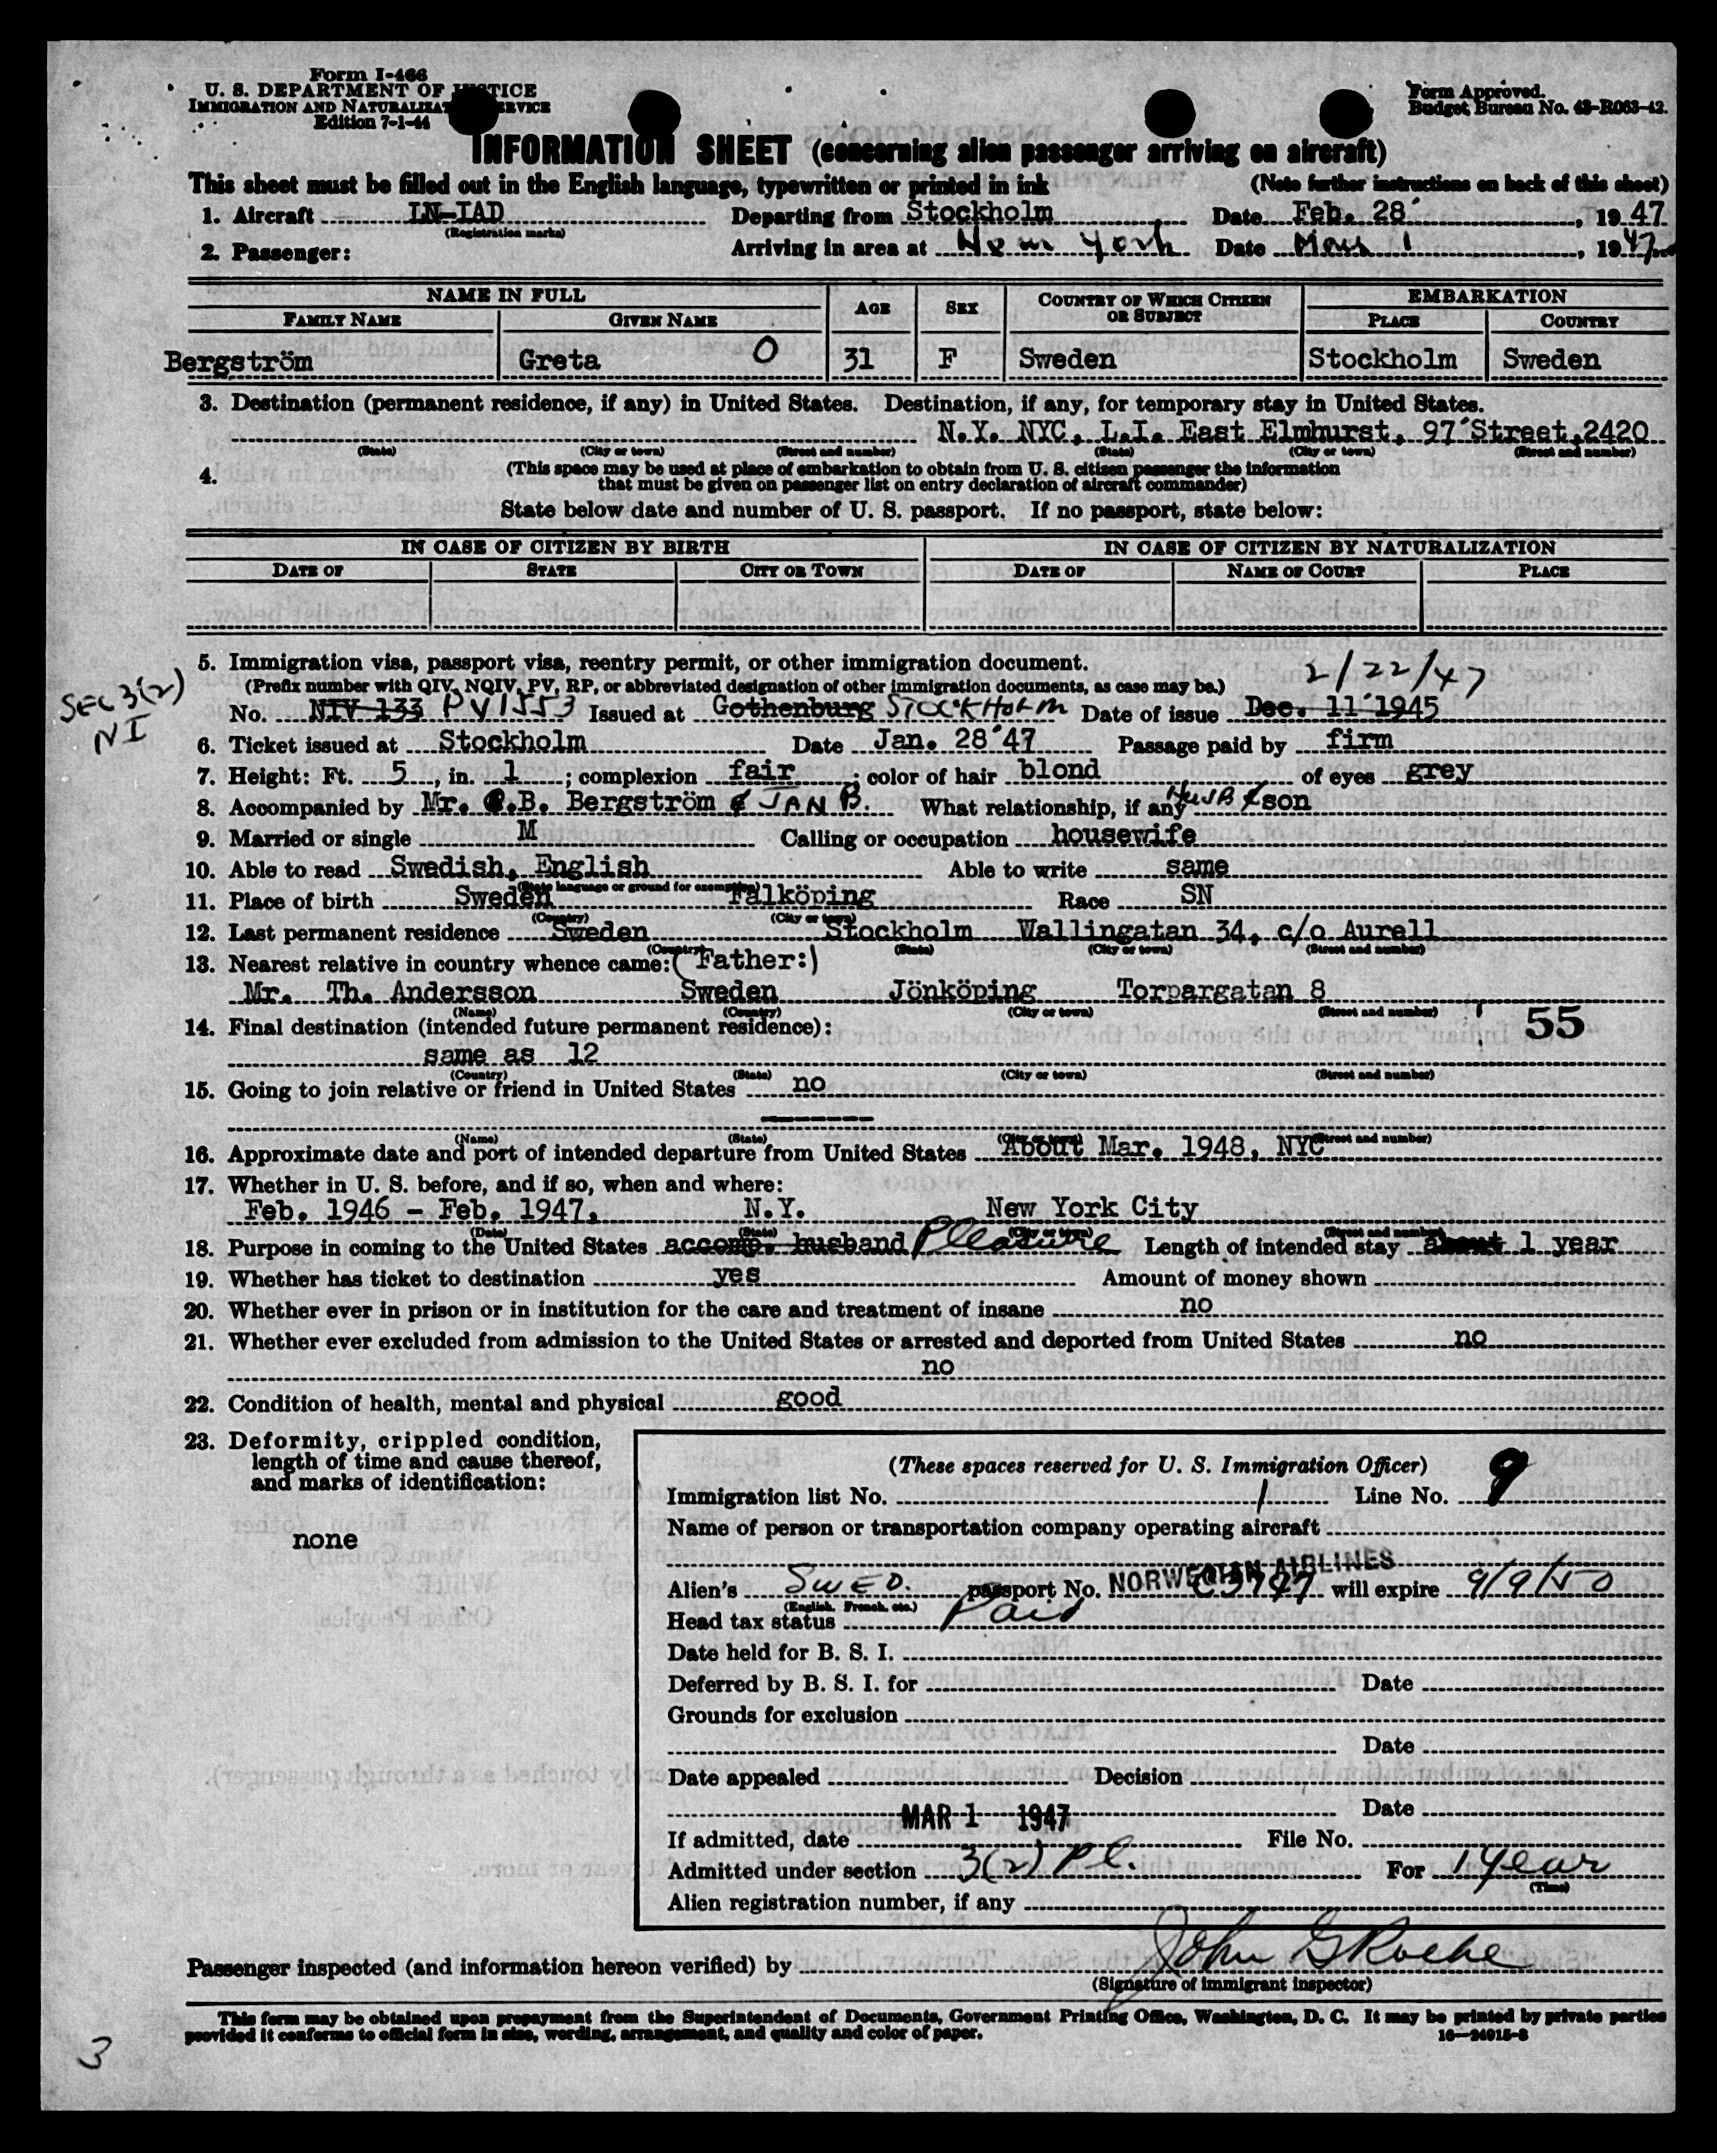 Form I-466
U. S. DEPARTMENT OF JUSTICE
IMMIGRATION AND NATURALIZATION SERVICE
Edition 7-1-44
Form Approved.
Budget Bureau No. 43-R063-42.
INFORMATION SHEET (concerning alien passenger arriving on aircraft)
This sheet must be filled out in the English language, typewritten or printed in ink (Note further instructions on back of this sheet)
1. Aircraft LN-IAD Departing from Stockholm Date Feb. 28, 1947
(Registration marks)
2. Passenger: Arriving in area at New York Date Mar 1, 1947
NAME IN FULL AGE SEX COUNTRY OF WHICH CITIZEN OR SUBJECT EMBARKATION
FAMILY NAME GIVEN NAME PLACE COUNTRY
Bergström Greta O 31 F Sweden Stockholm Sweden
3. Destination (permanent residence, if any) in United States. Destination, if any, for temporary stay in United States.
N.Y. NYC, L.I. East Elmhurst, 97 Street,2420
(State) (City or town) (Street and number) (State) (City or town) (Street and number)
4. (This space may be used at place of embarkation to obtain from U. S. citizen passenger the information
that must be given on passenger list on entry declaration of aircraft commander)
State below date and number of U. S. passport. If no passport, state below:
IN CASE OF CITIZEN BY BIRTH IN CASE OF CITIZEN BY NATURALIZATION
DATE OF STATE CITY OR TOWN DATE OF NAME OF COURT PLACE
5. Immigration visa, passport visa, reentry permit, or other immigration document. 2/22/47
(Prefix number with QIV, NQIV, PV, RP, or abbreviated designation of other immigration documents, as case may be.)
SEC 3(2)
NI
No. NIV 133 PV1553 Issued at Gothenburg STOCKHOLM Date of issue Dec. 11 1945
6. Ticket issued at Stockholm Date Jan. 28'47 Passage paid by firm
7. Height: Ft. 5, in. 1; complexion fair; color of hair blond of eyes grey
8. Accompanied by Mr. C.B. Bergström & JAN B. What relationship, if any HusB & son
9. Married or single M Calling or occupation housewife
10. Able to read Swedish, English Able to write same
(State language or ground for exemption)
11. Place of birth Sweden Falköping Race SN
(Country) (City or town)
12. Last permanent residence Sweden Stockholm Wallingatan 34, c/o Aurell
(Country) (State) (City or town) (Street and number)
13. Nearest relative in country whence came: (Father:)
Mr. Th. Andersson Sweden Jönköping Torpargatan 8
(Name) (Country) (City or town) (Street and number)
14. Final destination (intended future permanent residence): 55
same as 12
(Country) (State) (City or town) (Street and number)
15. Going to join relative or friend in United States no
(Name) (State) (City or town) (Street and number)
16. Approximate date and port of intended departure from United States About Mar. 1948, NYC
17. Whether in U. S. before, and if so, when and where:
Feb. 1946 - Feb. 1947, N.Y. New York City
(Date) (State) (City or town) (Street and number)
18. Purpose in coming to the United States accomp. husband Pleasure Length of intended stay about 1 year
19. Whether has ticket to destination yes Amount of money shown
20. Whether ever in prison or in institution for the care and treatment of insane no
21. Whether ever excluded from admission to the United States or arrested and deported from United States no
no
22. Condition of health, mental and physical good
23. Deformity, crippled condition,
length of time and cause thereof,
and marks of identification:
none
(These spaces reserved for U. S. Immigration Officer)
Immigration list No. 1 Line No. 9
Name of person or transportation company operating aircraft
NORWEGIAN AIRLINES
Alien's SWED. passport No. C3797 will expire 9/9/50
(English, French, etc.)
Head tax status Paid
Date held for B. S. I.
Deferred by B. S. I. for Date
Grounds for exclusion
Date
Date appealed Decision
Date
MAR 1 1947
If admitted, date File No.
Admitted under section 3(2) Pl. For 1 year
(Time)
Alien registration number, if any
Passenger inspected (and information hereon verified) by John G Roche
(Signature of immigrant inspector)
This form may be obtained upon prepayment from the Superintendent of Documents, Government Printing Office, Washington, D. C. It may be printed by private parties
provided it conforms to official form in size, wording, arrangement, and quality and color of paper. 16—24915-3
3